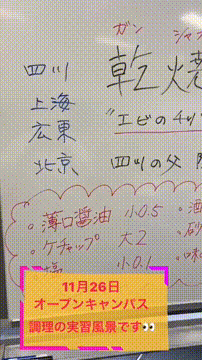 ガン シャ
乾焼
四川
上海
広東
北京
"エビのチリ
四川の父
・薄口醤油 小0.5
・ケチャップ 大2
小0.1
・酒
・砂
11月26日
オープンキャンパス
調理の実習風景です👀